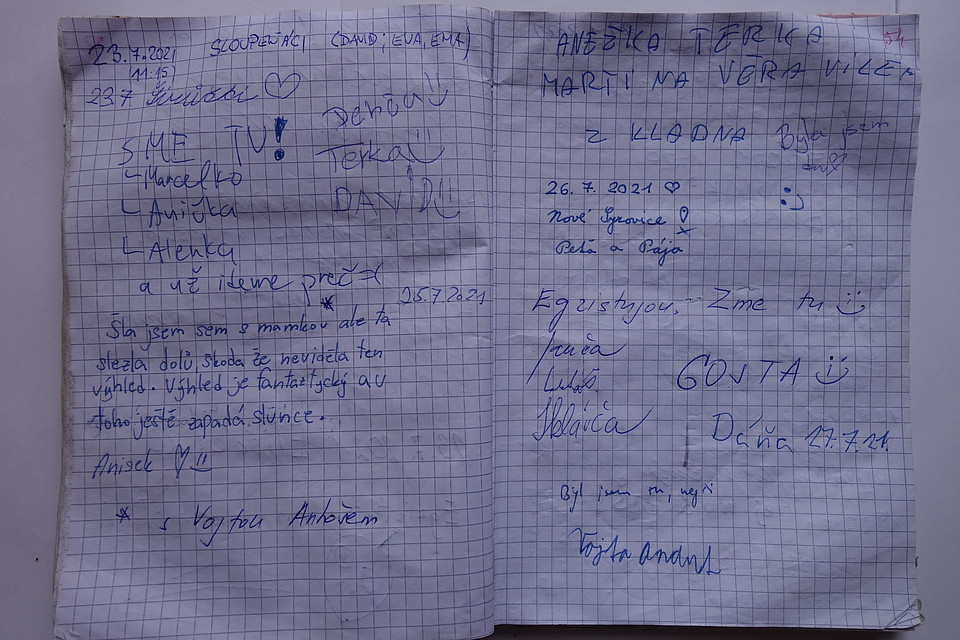 23.7.2021 SLOUPEŇÁCI (DAVID; EVA, EMA)
(11:15)
23.7
SME TU!
Marcelko
Anička
Alenka
a už ideme preč =(
Deničů
Terka
DAVID
25.7.2021
Šla jsem sem s mamkou ale ta
slezla dolů, škoda že neviděla ten
výhled. Výhled je fantaztycký a u
toho ještě zapadá slunce.
Anisek
* s Vojtou
54
ANEŽKA TERKA
MARTINA VĚRA VILÉM
Z KLADNA
Byla jsem
:-)
26. 7. 2021 ♡
Nové Syrovice
Petă a Pája
Egzistujou, Zme tu
Lukáš
GOSTA
Dáňa 27.7.21.
Byl jsem tu,
Vojta